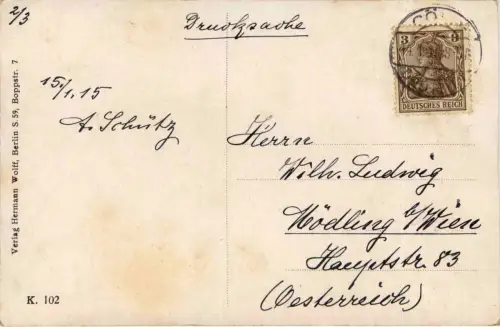 2/3
Drucksache
CÖ
3 3
DEUTSCHES REICH
15/1.15
A. Schütz
Herrn
Wilh. Ludwig
Mödling b/Wien
Hauptstr. 83
(Oesterreich)
Verlag Hermann Wolff, Berlin S. 59, Boppstr. 7
K. 102